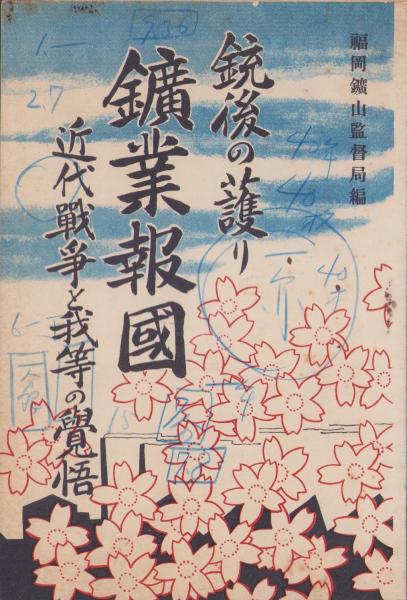 福岡鑛山監督局編
銃後の護り
鑛業報國
近代戰爭と我等の覺悟
1.—
736
2.7